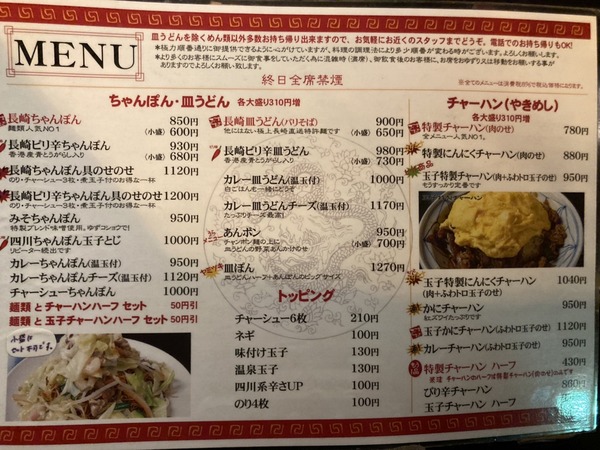 MENU
皿うどんを除くめん類以外多数お持ち帰り出来ますので、お気軽にお近くのスタッフまでどうぞ。電話でのお持ち帰りもOK!
＊極力順番通りに御提供できるように心がけていますが、料理の調理法により多少順番が変わる時がございます。よろしくお願いします。
＊より多くのお客様にスムーズに御食事をしていただく為に混雑時（満席）、御飲食後のお客様に、お席をおゆずりえは移動をお願いする事が
ありますのでよろしくお願い致します。
終日全席禁煙
ちゃんぽん・皿うどん 各大盛り310円増
長崎ちゃんぽん 850円
麺類人気NO1 (小盛) 600円
長崎ピリ辛ちゃんぽん 930円
香港産青とうがらし入り (小盛) 680円
長崎ちゃんぽん具のせのせ 1120円
のり・チャーシュー3枚・煮玉子付のお得な一杯
長崎ピリ辛ちゃんぽん具のせのせ 1200円
のり・チャーシュー3枚・煮玉子付のお得な一杯
みそちゃんぽん 950円
特製ブレンド味噌使用。ゆずコショウで!
四川ちゃんぽん玉子とじ 1000円
リピーター続出です
カレーちゃんぽん(温玉付) 950円
カレーちゃんぽんチーズ(温玉付) 1120円
チャーシューちゃんぽん 1000円
麺類 と チャーハンハーフ セット 50円引
麺類 と 玉子チャーハンハーフ セット 50円引
長崎皿うどん(パリそば) 900円
他にはない極上長崎直送特許麺です (小盛) 650円
長崎ピリ辛皿うどん 980円
香港産青とうがらし入り (小盛) 730円
カレー皿うどん(温玉付) 1000円
白ごはんも一緒にどうぞ
カレー皿うどんチーズ(温玉付) 1170円
たっぷりチーズ最高!
あんポン 950円
チャンポン麺の上に (小盛) 700円
皿うどんの野菜あんかけのせ
皿ぽん 1270円
皿うどんハーフ+あんぽんのビッグサイズ
トッピング
チャーシュー6枚 210円
ネギ 100円
味付け玉子 130円
温泉玉子 130円
四川系辛さUP 100円
のり4枚 100円
チャーハン(やきめし)
各大盛り310円増
特製チャーハン(肉のせ) 780円
全メニュー人気NO1
特製にんにくチャーハン(肉のせ) 880円
玉子特製チャーハン(肉+ふわトロ玉子のせ) 950円
もうすっかり定番です
玉子特製にんにくチャーハン 1040円
(肉+ふわトロ玉子のせ)
かにチャーハン 950円
紅ズワイたっぷりです
玉子かにチャーハン(ふわトロ玉子のせ) 1120円
カレーチャーハン(ふわトロ玉子のせ) 950円
特製チャーハン ハーフ 430円
ぴり辛チャーハン 860円
玉子チャーハン ハーフ